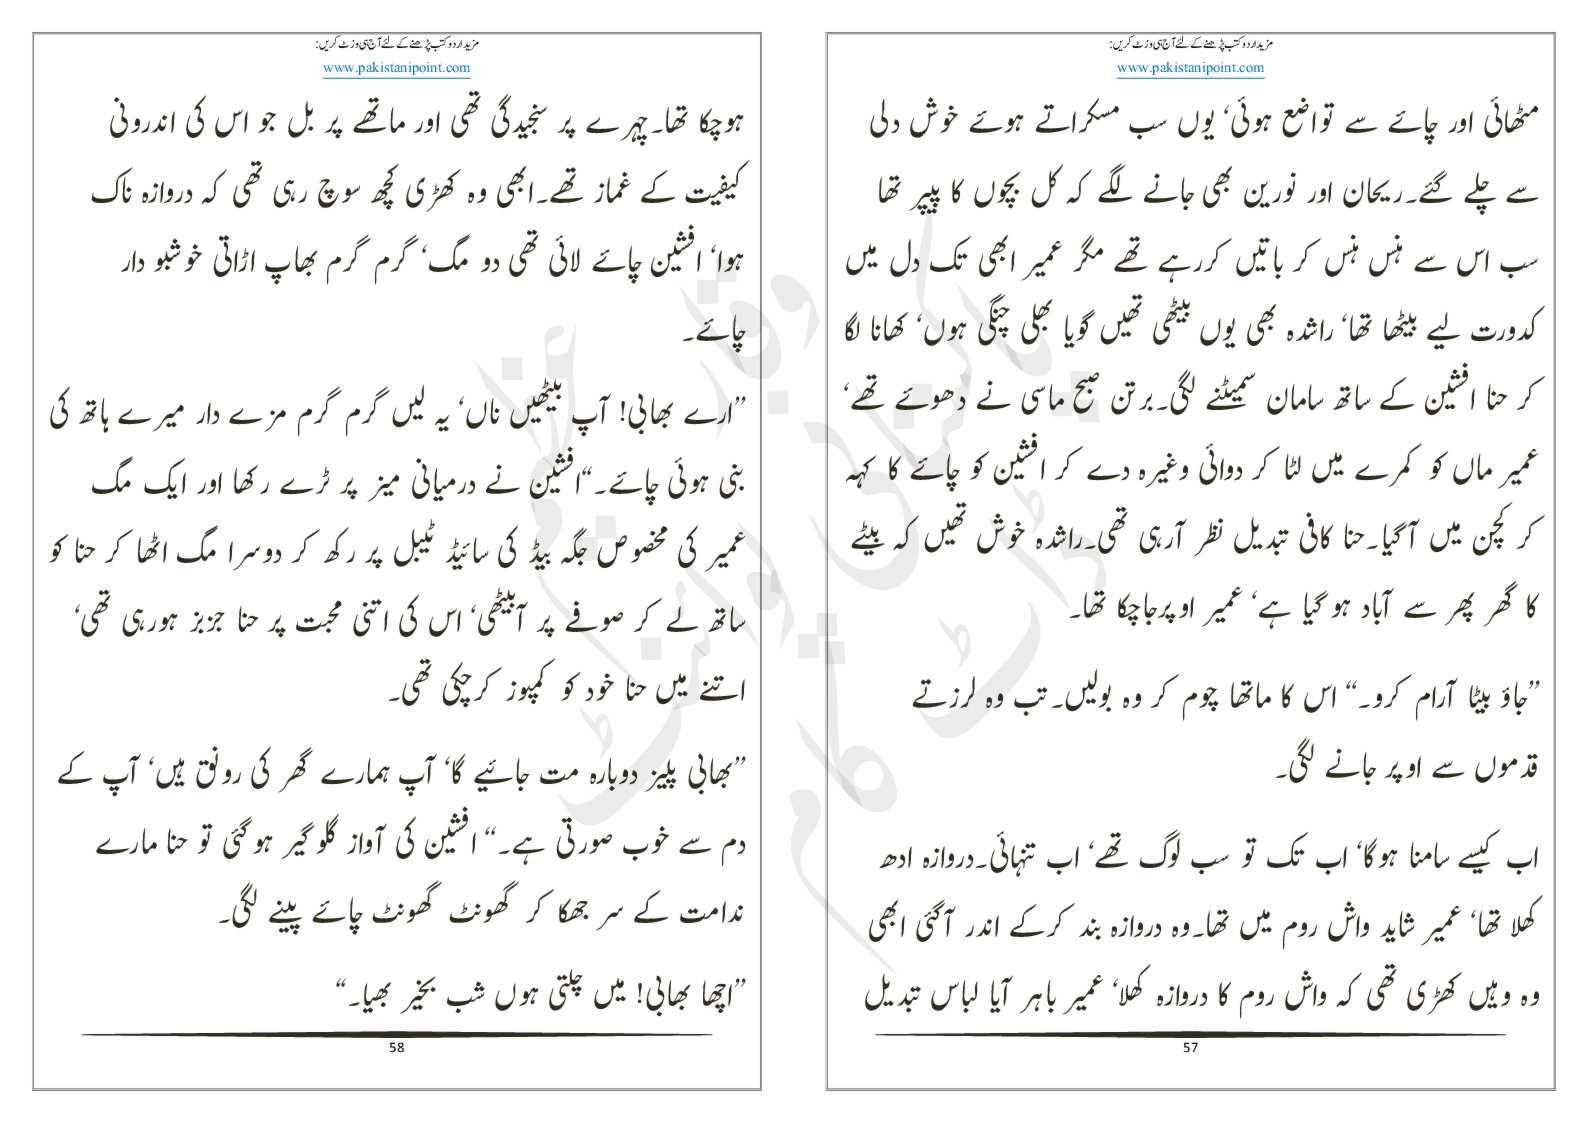 مزید اردو کتب پڑھنے کے لئے آج ہی وزٹ کریں:
www.pakistanipoint.com
مٹھائی اور چائے سے تواضع ہوئی‘ یوں سب مسکراتے ہوئے خوش دلی
سے چلے گئے۔ریحان اور نورین بھی جانے لگے کہ کل بچوں کا پیپر تھا
سب اس سے ہنس ہنس کر باتیں کررہے تھے مگر عمیر ابھی تک دل میں
کدورت لیے بیٹھا تھا‘ راشدہ بھی یوں بیٹھی تھیں گویا بھلی چنگی ہوں‘ کھانا لگا
کر حنا افشین کے ساتھ سامان سمیٹنے لگی۔برتن صبح ماسی نے دھوئے تھے‘
عمیر ماں کو کمرے میں لٹا کر دوائی وغیرہ دے کر افشین کو چائے کا کہہ
کر کچن میں آگیا۔حنا کافی تبدیل نظر آرہی تھی۔راشدہ خوش تھیں کہ بیٹے
کا گھر پھر سے آباد ہو گیا ہے‘ عمیر اوپرجاچکا تھا۔
”جاؤ بیٹا آرام کرو۔“ اس کا ماتھا چوم کر وہ بولیں۔تب وہ لرزتے
قدموں سے اوپر جانے لگی۔
اب کیسے سامنا ہوگا‘ اب تک تو سب لوگ تھے‘ اب تنہائی۔دروازہ ادھ
کھلا تھا‘ عمیر شاید واش روم میں تھا۔وہ دروازہ بند کرکے اندر آگئی ابھی
وہ وہیں کھڑی تھی کہ واش روم کا دروازہ کھلا‘ عمیر باہر آیا لباس تبدیل
57
مزید اردو کتب پڑھنے کے لئے آج ہی وزٹ کریں:
www.pakistanipoint.com
ہوچکا تھا۔چہرے پر سنجیدگی تھی اور ماتھے پر بل جو اس کی اندرونی
کیفیت کے غماز تھے۔ابھی وہ کھڑی کچھ سوچ رہی تھی کہ دروازہ ناک
ہوا‘ افشین چائے لائی تھی دو مگ‘ گرم گرم بھاپ اڑاتی خوشبو دار
چائے۔
”ارے بھابی! آپ بیٹھیں ناں‘ یہ لیں گرم گرم مزے دار میرے ہاتھ کی
بنی ہوئی چائے۔“افشین نے درمیانی میز پر ٹرے رکھا اور ایک مگ
عمیر کی مخصوص جگہ بیڈ کی سائیڈ ٹیبل پر رکھ کر دوسرا مگ اٹھا کر حنا کو
ساتھ لے کر صوفے پر آبیٹھی‘ اس کی اتنی محبت پر حنا جزبز ہورہی تھی‘
اتنے میں حنا خود کو کمپوز کرچکی تھی۔
”بھابی پلیز دوبارہ مت جائیے گا‘ آپ ہمارے گھر کی رونق ہیں‘ آپ کے
دم سے خوب صورتی ہے۔“ افشین کی آواز گلوگیر ہوگئی تو حنا مارے
ندامت کے سر جھکا کر گھونٹ گھونٹ چائے پینے لگی۔
”اچھا بھابی! میں چلتی ہوں شب بخیر بھیا۔“
58
پاکستانی پوائنٹ ڈاٹ کام